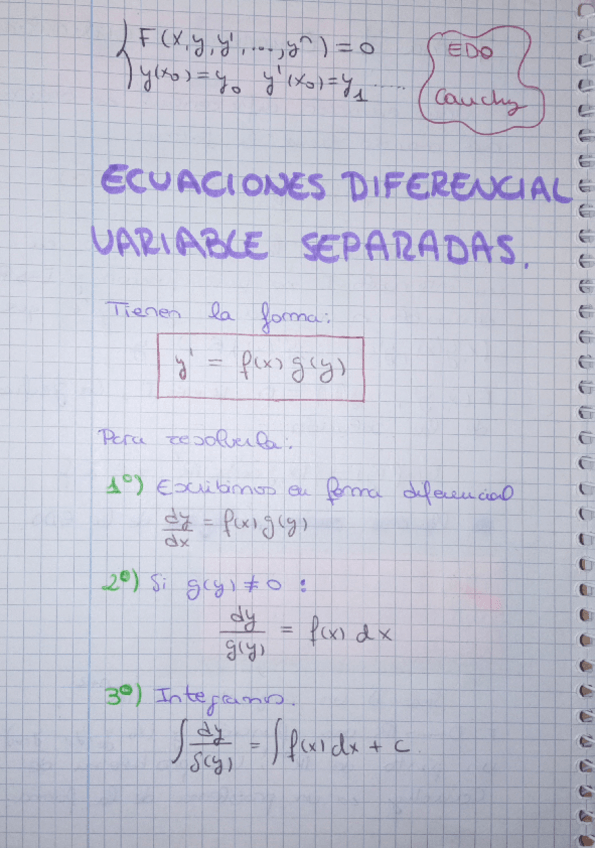 F(x,y,y',...,yⁿ)=0
y(x₀)=y₀ y'(x₀)=y₁ .....
EDO
Cauchy
ECUACIONES DIFERENCIAL
VARIABLE SEPARADAS.
Tienen la forma:
y' = f(x) g(y)
Para resolverla:
1º) Escribimos en forma diferencial
dy/dx = f(x) g(y)
2º) Si g(y) ≠ 0 :
dy/g(y) = f(x) dx
3º) Integramos.
∫ dy/g(y) = ∫ f(x) dx + C